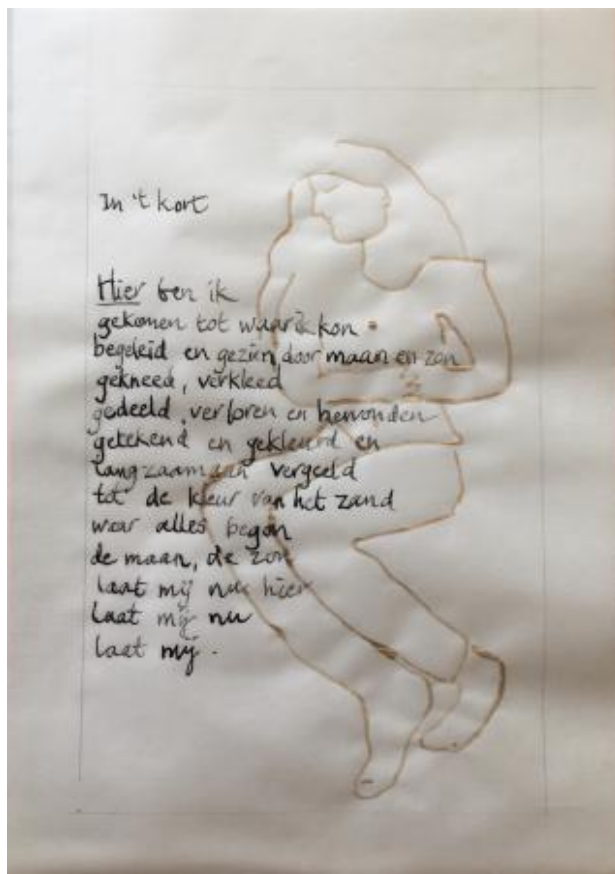 In 't kort
Hier ben ik
gekomen tot waar ik kon
begeleid en gezien door maan en zon
gekneed, verkleed
gedeeld, verloren en hervonden
getekend en gekleurd en
langzaam aan vergeeld
tot de kleur van het zand
waar alles begon
de maan, de zon
laat mij nu hier
laat mij nu
laat mij.